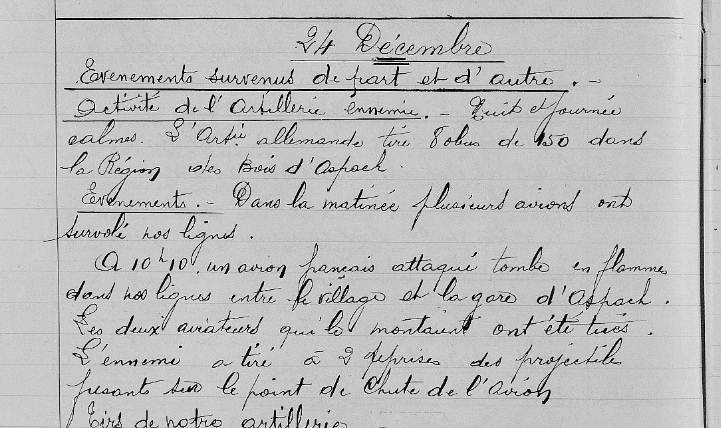 24 Décembre
Evenements survenus de part et d'autre. -
Activité de l'Artillerie ennemie. - Nuit et journée
calmes. L'Artie allemande tire 8 obus de 150 dans
la Région des Bois d'Aspach.
Evenements. - Dans la matinée plusieurs avions ont
survolé nos lignes.
A 10h10, un avion français attaqué tombe en flammes
dans nos lignes entre le village et la gare d'Aspach.
Les deux aviateurs qui le montaient ont été tués.
L'ennemi a tiré à 2 reprises des projectiles
fusants sur le point de chute de l'avion
Tirs de notre artillerie